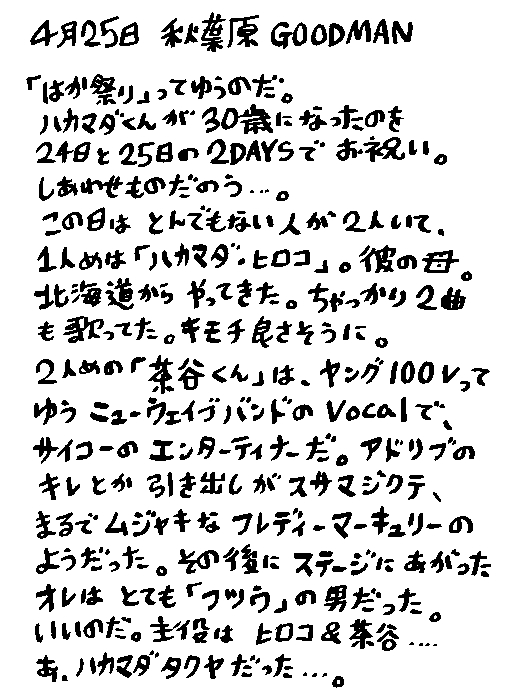 4月25日 秋葉原 GOODMAN
「はか祭り」ってゆうのだ。
ハカマダくんが30歳になったのを
24日と25日の2DAYSでお祝い。
しあわせものだのう…。
この日はとんでもない人が2人いて、
1人めは「ハカマダ・ヒロコ」。彼の母。
北海道からやってきた。ちゃっかり2曲
も歌ってた。キモチ良さそうに。
2人めの「茶谷くん」は、ヤング100Vって
ゆうニューウェイブバンドのVocalで、
サイコーのエンターティナーだ。アドリブの
キレとか引き出しがスサマジクテ、
まるでムジャキなフレディーマーキュリーの
ようだった。その後にステージにあがった
オレはとても「フツウ」の男だった。
いいのだ。主役はヒロコ&茶谷....
あ、ハカマダタクヤだった...。